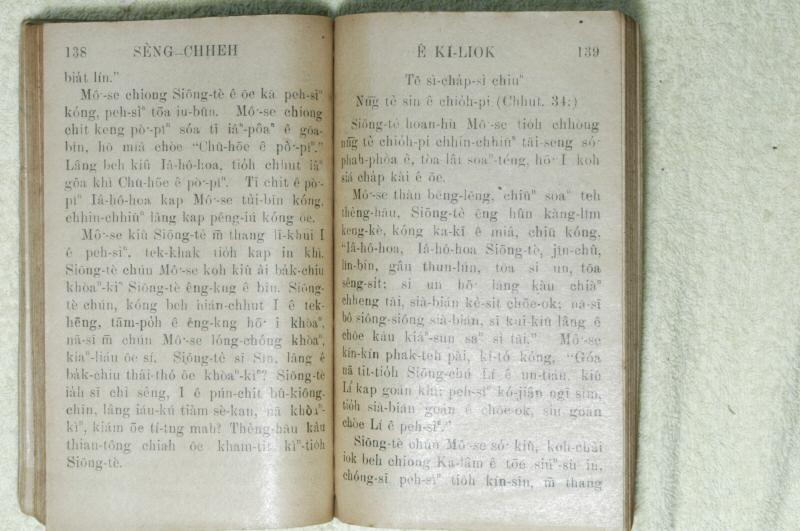 138 SÈNG-CHHEH
biát lín.”
Mô͘-se chiong Siōng-tè ê ōe kā peh-sìⁿ
kóng, peh-sìⁿ tōa iu-būn. Mô͘-se chiong
chi̍t keng pò͘-pîⁿ sóa tī iâⁿ-pôaⁿ ê gōa-
bīn, hō miâ chòe “Chū-hōe ê pò͘-pîⁿ.”
Lâng beh kiû Iâ-hô-hoa, tio̍h chhut iâⁿ
gōa khì Chū-hōe ê pò͘-pîⁿ. Tī chit ê pò͘-
pîⁿ Iâ-hô-hoa kap Mô͘-se tùi-bīn kóng,
chhin-chhiūⁿ lâng kap pêng-iú kóng ōe.
Mô͘-se kiû Siōng-tè m̄ thang lī-khui I
ê peh-sìⁿ, tek-khak tio̍h kap in khì.
Siōng-tè chún Mô͘-se koh kiû ài ba̍k-chiu
khòaⁿ-kìⁿ Siōng-tè êng-kng ê bīn. Siōng-
tè chún, kóng beh hián-chhut I ê tek-
hēng, tām-po̍h ê êng-kng hō͘ i khòaⁿ,
nā-sī m̄ chún Mô͘-se lóng-chóng khòaⁿ,
kiaⁿ-liáu ōe sí. Siōng-tè sī Sîn, lâng ê
ba̍k-chiu thài-thó ōe khòaⁿ-kìⁿ? Siōng-tè
iáh sī chì sèng, I ê pún-chit bû-kiông-
chīn, lâng iáu-kú tiàm sè-kan, nā khòaⁿ-
kìⁿ, kiám ōe tí-tng mah? Thèng-hāu kàu
thian-tông chiah ōe kham-tit kìⁿ-tio̍h
Siōng-tè.
Ê KÌ-LIO̍K 139
Tē sì-cha̍p-sì chiuⁿ
Nn̄g tè sin ê chio̍h-pi (Chhut. 34:)
Siōng-tè hoan-hù Mô͘-se tio̍h chhòng
nn̄g tè chio̍h-pi chhin-chhiūⁿ tāi-seng só͘
phah-phòa ê, tòa-lâi soaⁿ-téng, hō͘ I koh
siá cha̍p kài ê ōe.
Mô͘-se thàn bēng-lēng, chiūⁿ soaⁿ teh
thèng-hāu, Siōng-tè ēng hûn kàng-lîm
keng-kè, kóng ka-kī ê miâ, chiū kóng,
“Iâ-hô-hoa, Iâ-hô-hoa Siōng-tè, jîn-chû,
lîn-bín, gâu thun-lún, tōa sì un, tōa
sêng-sit; sì un hō͘ lâng kàu chiâⁿ
chheng tāi, sià-bián kè-sit chōe-ok; nā-sī
bô siông-siông sià-bián, sī kui-kiù lâng ê
chōe kàu kiáⁿ-sun saⁿ sì tāi.” Mô͘-se
kín-kín phak-teh pài, kî-tó kóng, “Góa
nā tit-tio̍h Siōng-chú Lí ê un-tián, kiû
Lí kap goán khì; peh-sìⁿ kó-jiân ngī sim,
tio̍h sià-bián goán ê chōe-ok, siu goán
chòe Lí ê peh-sìⁿ.”
Siōng-tè chún Mô͘-se só͘ kiû, koh-chài
iok beh chiong Ka-lâm ê tōe siúⁿ-sù in,
chóng-sī peh-sìⁿ tio̍h kín-sīn, m̄ thang